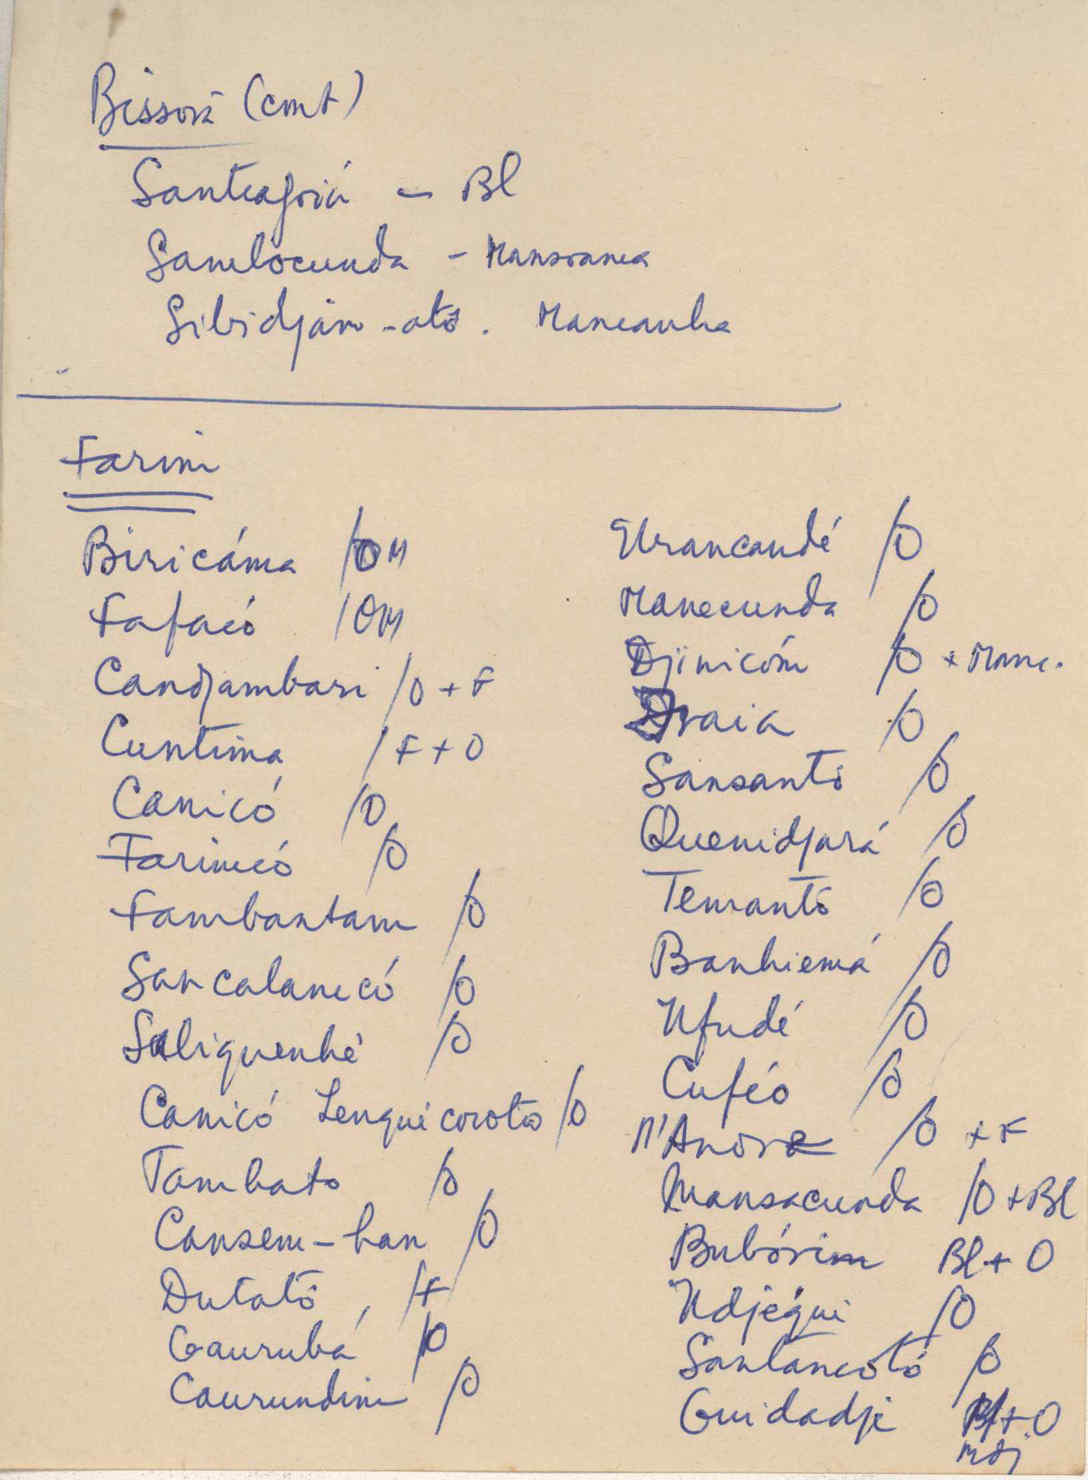 Bissorã (cont)
Santiagoiá - Bl
Sambocunda - Mansoanca
Sibidjam-otó. Mancanha
Farim
Biricáma /OM
Fafacó /OM
Candjambari /O + F
Cuntima / F + O
Canicó /O
Farincó /O
Fambantam /O
Sancalancó /O
Saliquenhé /O
Canicó Lenquécoroto /O
Tambato /O
Cansem-han /O
Dutató, /F
Gaurubá /O
Caurundim /O
Urancandé /O
Manecunda /O
Djinicóm /O + Manc.
Draia /O
Sansantó /O
Quenidjará /O
Temantó /O
Banhiemá /O
Nfudé /O
Cuféo /O
N'Anore /O + F
Mansacunda /O + Bl
Bubórim Bl + O
Ndjéqui /O
Santancotó /O
Guidadje Bl + O
Mdj